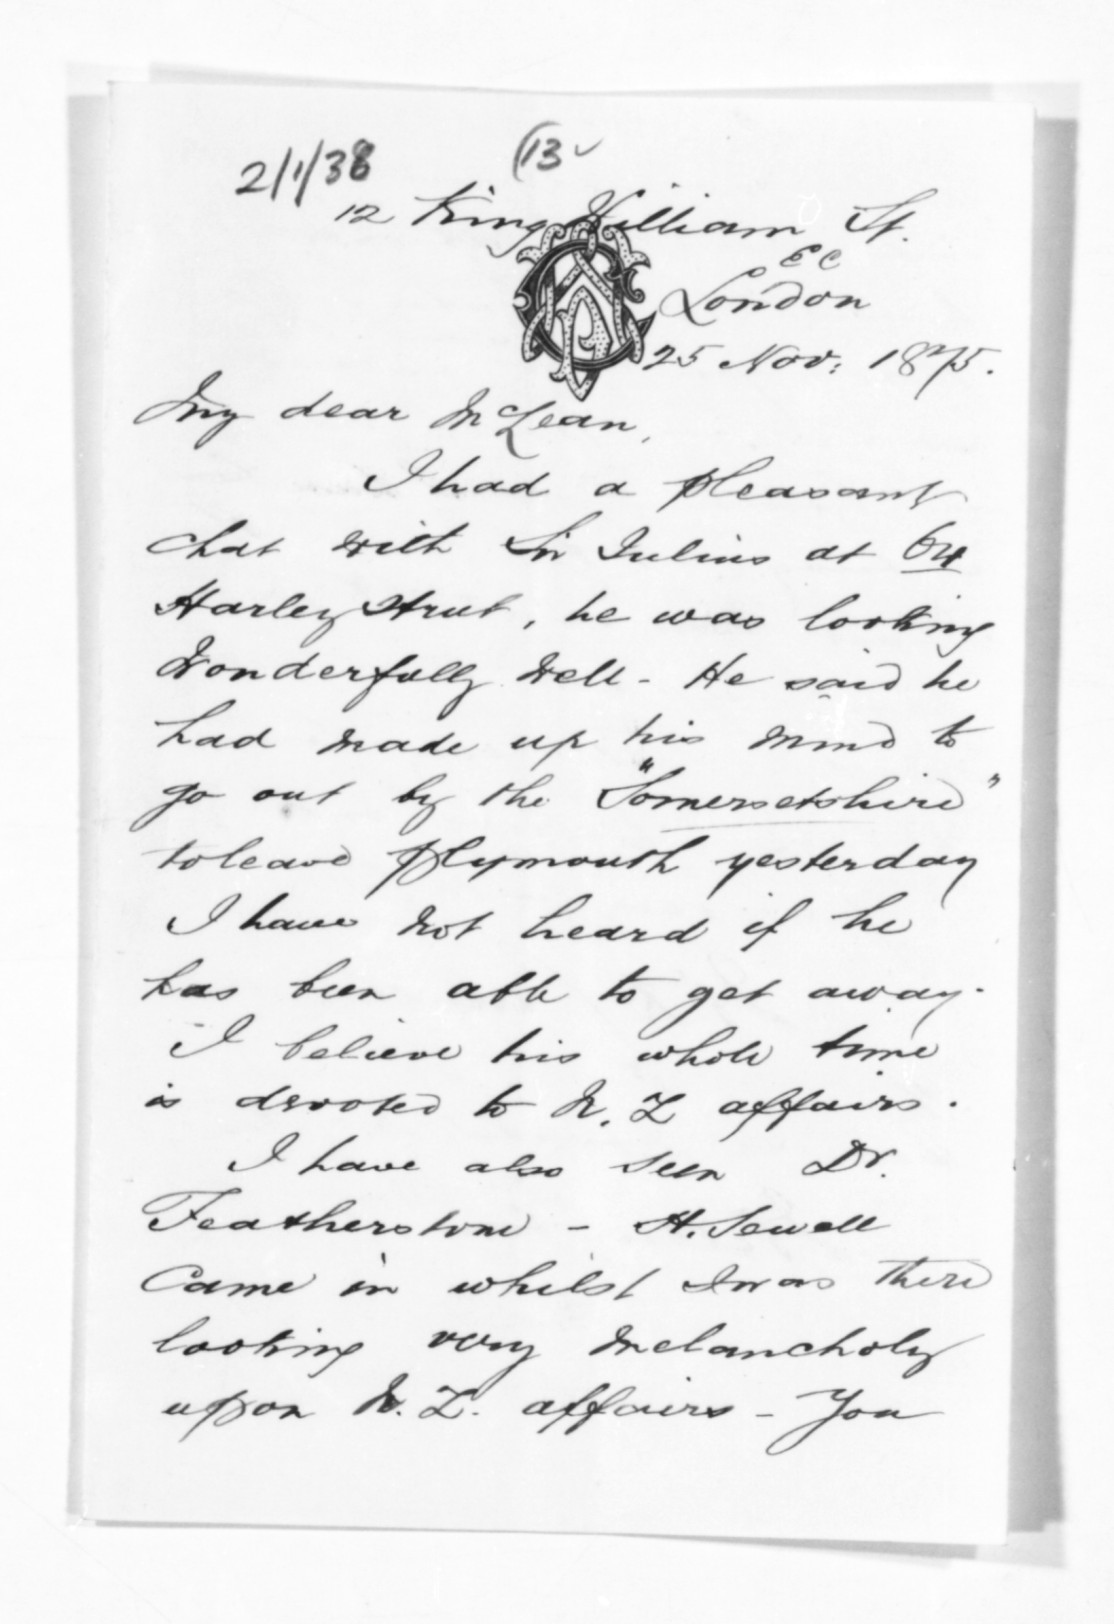 2/1/38 (13
12 King William St.
EC
London
25 Nov: 1875.
My dear McLean,
I had a pleasant
chat with Sir Julius at 64
Harley Street, he was looking
wonderfully well - He said he
had made up his mind to
go out by the "Somersetshire"
to leave Plymouth yesterday
I have not heard if he
has been able to get away.
I believe his whole time
is devoted to N. Z affairs.
I have also seen Dr.
Featherstone - H. Sewell
came in whilst I was there
looking very melancholy
upon N. Z. affairs - You